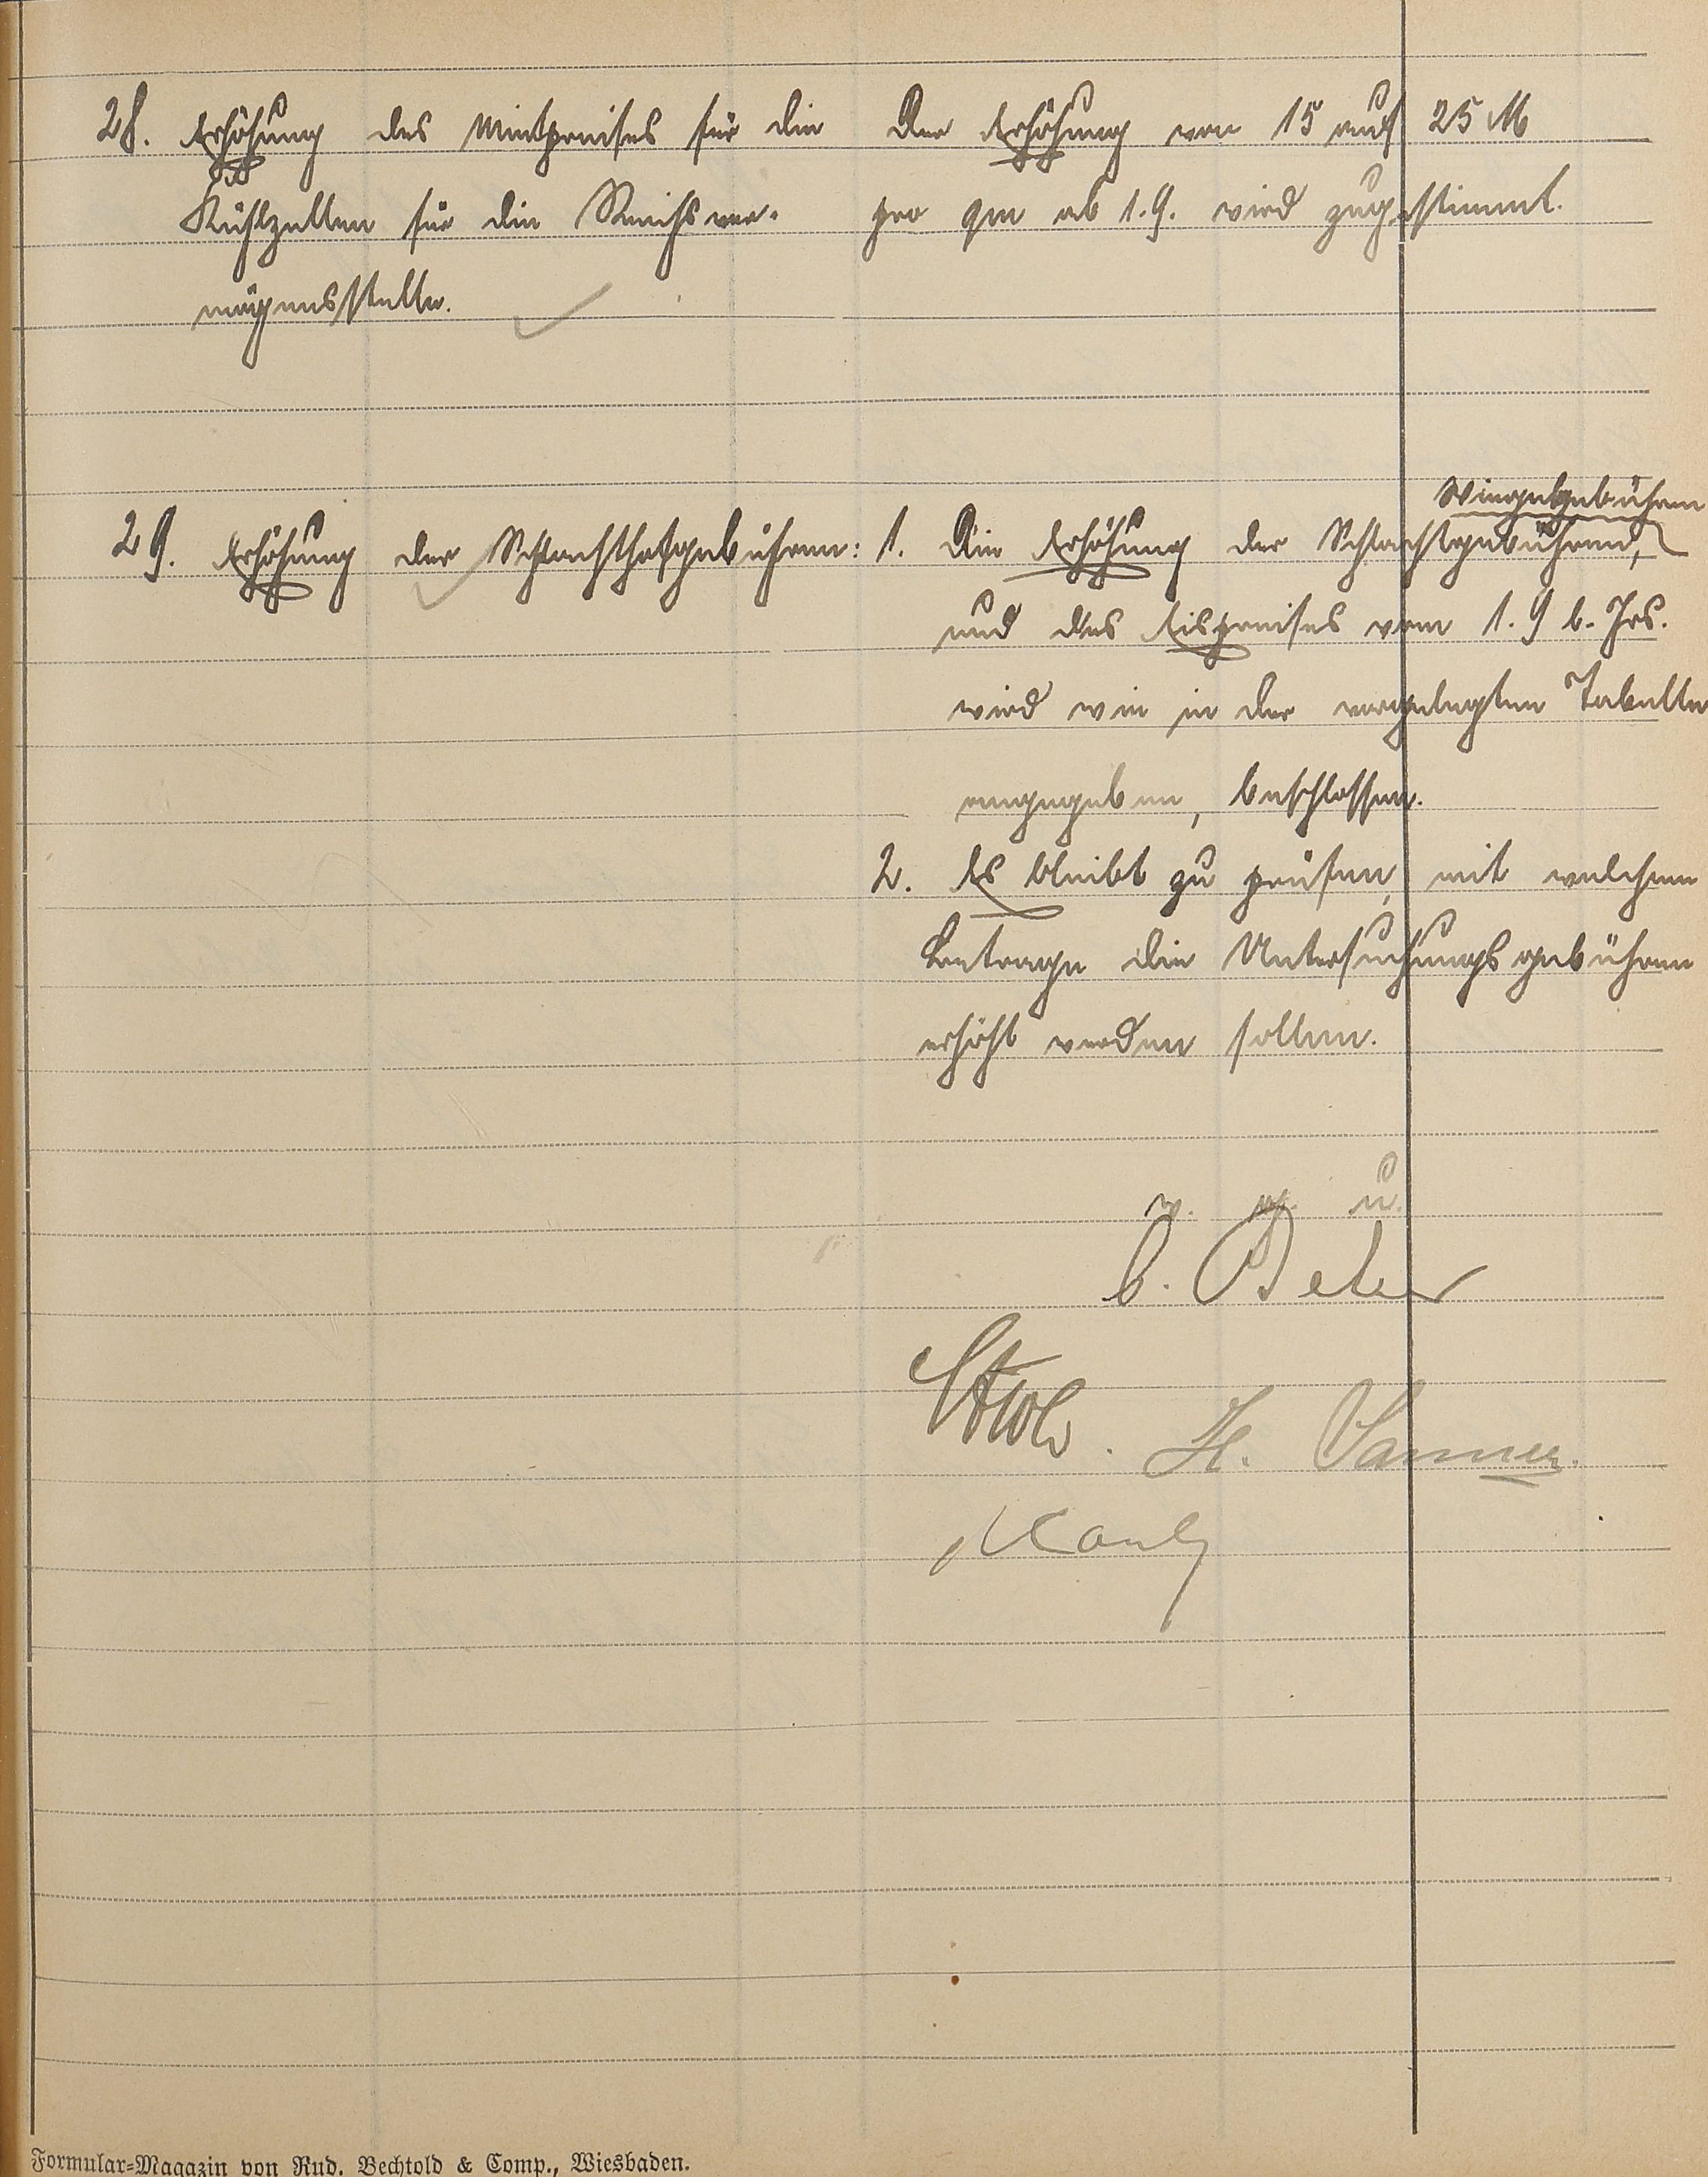 28. Erhöhung des Mietpreises für die
Kühlzellen für die Reichsver-
mögensstelle.
Der Erhöhung von 15 auf 25 M
pro qm ab 1.9. wird zugestimmt.
29. Erhöhung der Schlachthofgebühren:
Wiegegebühren
1. Die Erhöhung der Schlachtgebühren,
und des Eispreises vom 1.9 l. Jrs.
wird wie in der vorgelegten Tabelle
angegeben, beschlossen.
2. Es bleibt zu prüfen, mit welchem
Betrage die Untersuchungsgebühren
erhöht werden sollen.
v. g. u.
H.
Formular-Magazin von Rud. Bechtold & Comp., Wiesbaden.